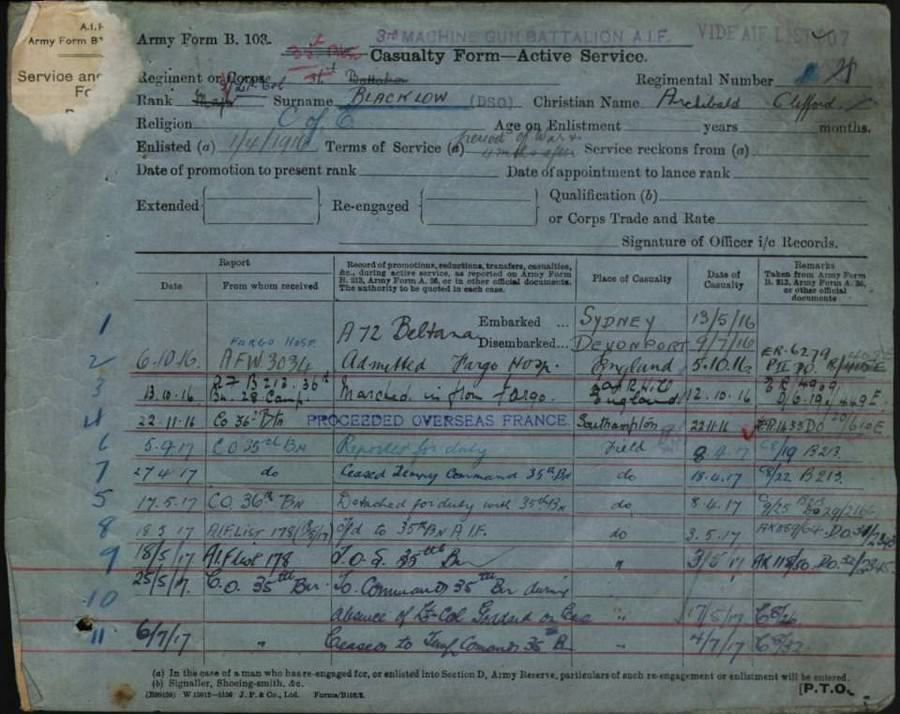 A.I.F
Army Form B
Service and
Army Form B. 103.
3rd MACHINE GUN BATTALION A.I.F.
VIDE AIF LIST
Casualty Form—Active Service.
Regiment or Corps
Regimental Number
Rank Major Surname BLACKLOW (DSO) Christian Name Archibald Clifford.
Religion C of E Age on Enlistment years months.
Enlisted (a) 1/4/1916 Terms of Service (a) period of War & 4 mths after Service reckons from (a)
Date of promotion to present rank Date of appointment to lance rank
Extended Re-engaged Qualification (b)
or Corps Trade and Rate
Signature of Officer i/c Records.
Report
Date From whom received
Record of promotions, reductions, transfers, casualties, &c., during active service, as reported on Army Form B. 213, Army Form A. 36, or in other official documents. The authority to be quoted in each case.
Place of Casualty
Date of Casualty
Remarks
Taken from Army Form B. 213, Army Form A. 36, or other official documents
1 A72 Beltana Embarked ... SYDNEY 13/5/16
Disembarked... DEVONPORT 9/7/16
FARGO HOSP.
2 6.10.16 AFW 3034 Admitted Fargo Hosp. England 5.10.16 ER-6279
3 13.10.16 B213. 36th Bn. Camp. Marched in from Fargo. England 12.10.16
4 22-11-16 Co 36th Btn PROCEEDED OVERSEAS FRANCE. Southampton 22.11.16
6 5.9.17 CO 35th Bn Reported for duty Field C8/19 B213.
7 27.4.17 do Ceased Tempy Command 35th Bn do 18.4.17 C8/22 B213.
5 17.5.17 CO. 36th Bn Detached for duty with 35th Bn do 8.4.17
8 18.5.17 A.I.F. LIST 178 to 35th Bn A.I.F. do 3.5.17
9 18/5/17 AIF List 178 T.O.S. 35th Bn " 3/5/17
10 25/5/17. C.O. 35th Bn. To Command 35th Bn during
absence of Lt-Col Goddard on " 17/5/17
11 6/7/17 " Ceases to Temp Command 35th Bn " 4/7/17
(a) In the case of a man who has re-engaged for, or enlisted into Section D, Army Reserve, particulars of such re-engagement or enlistment will be entered.
(b) Signaller, Shoeing-smith, &c.
J. P. & Co., Ltd. Forms/B103/2.
[P.T.O.